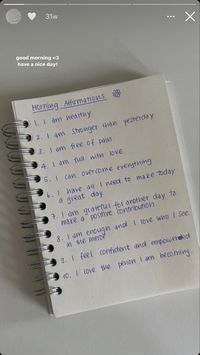 31w
good morning <3
have a nice day!
Morning Affirmations
1. I am healthy
2. I am stronger than yesterday
3. I am free of pain
4. I am full with love
5. I can overcome everything
6. I have all I need to make today
a great day
7. I am grateful for another day to
make a positive contribution
8. I am enough and I love who I see
in the mirror
9. I feel confident and empowered
10. I love the person I am becoming.